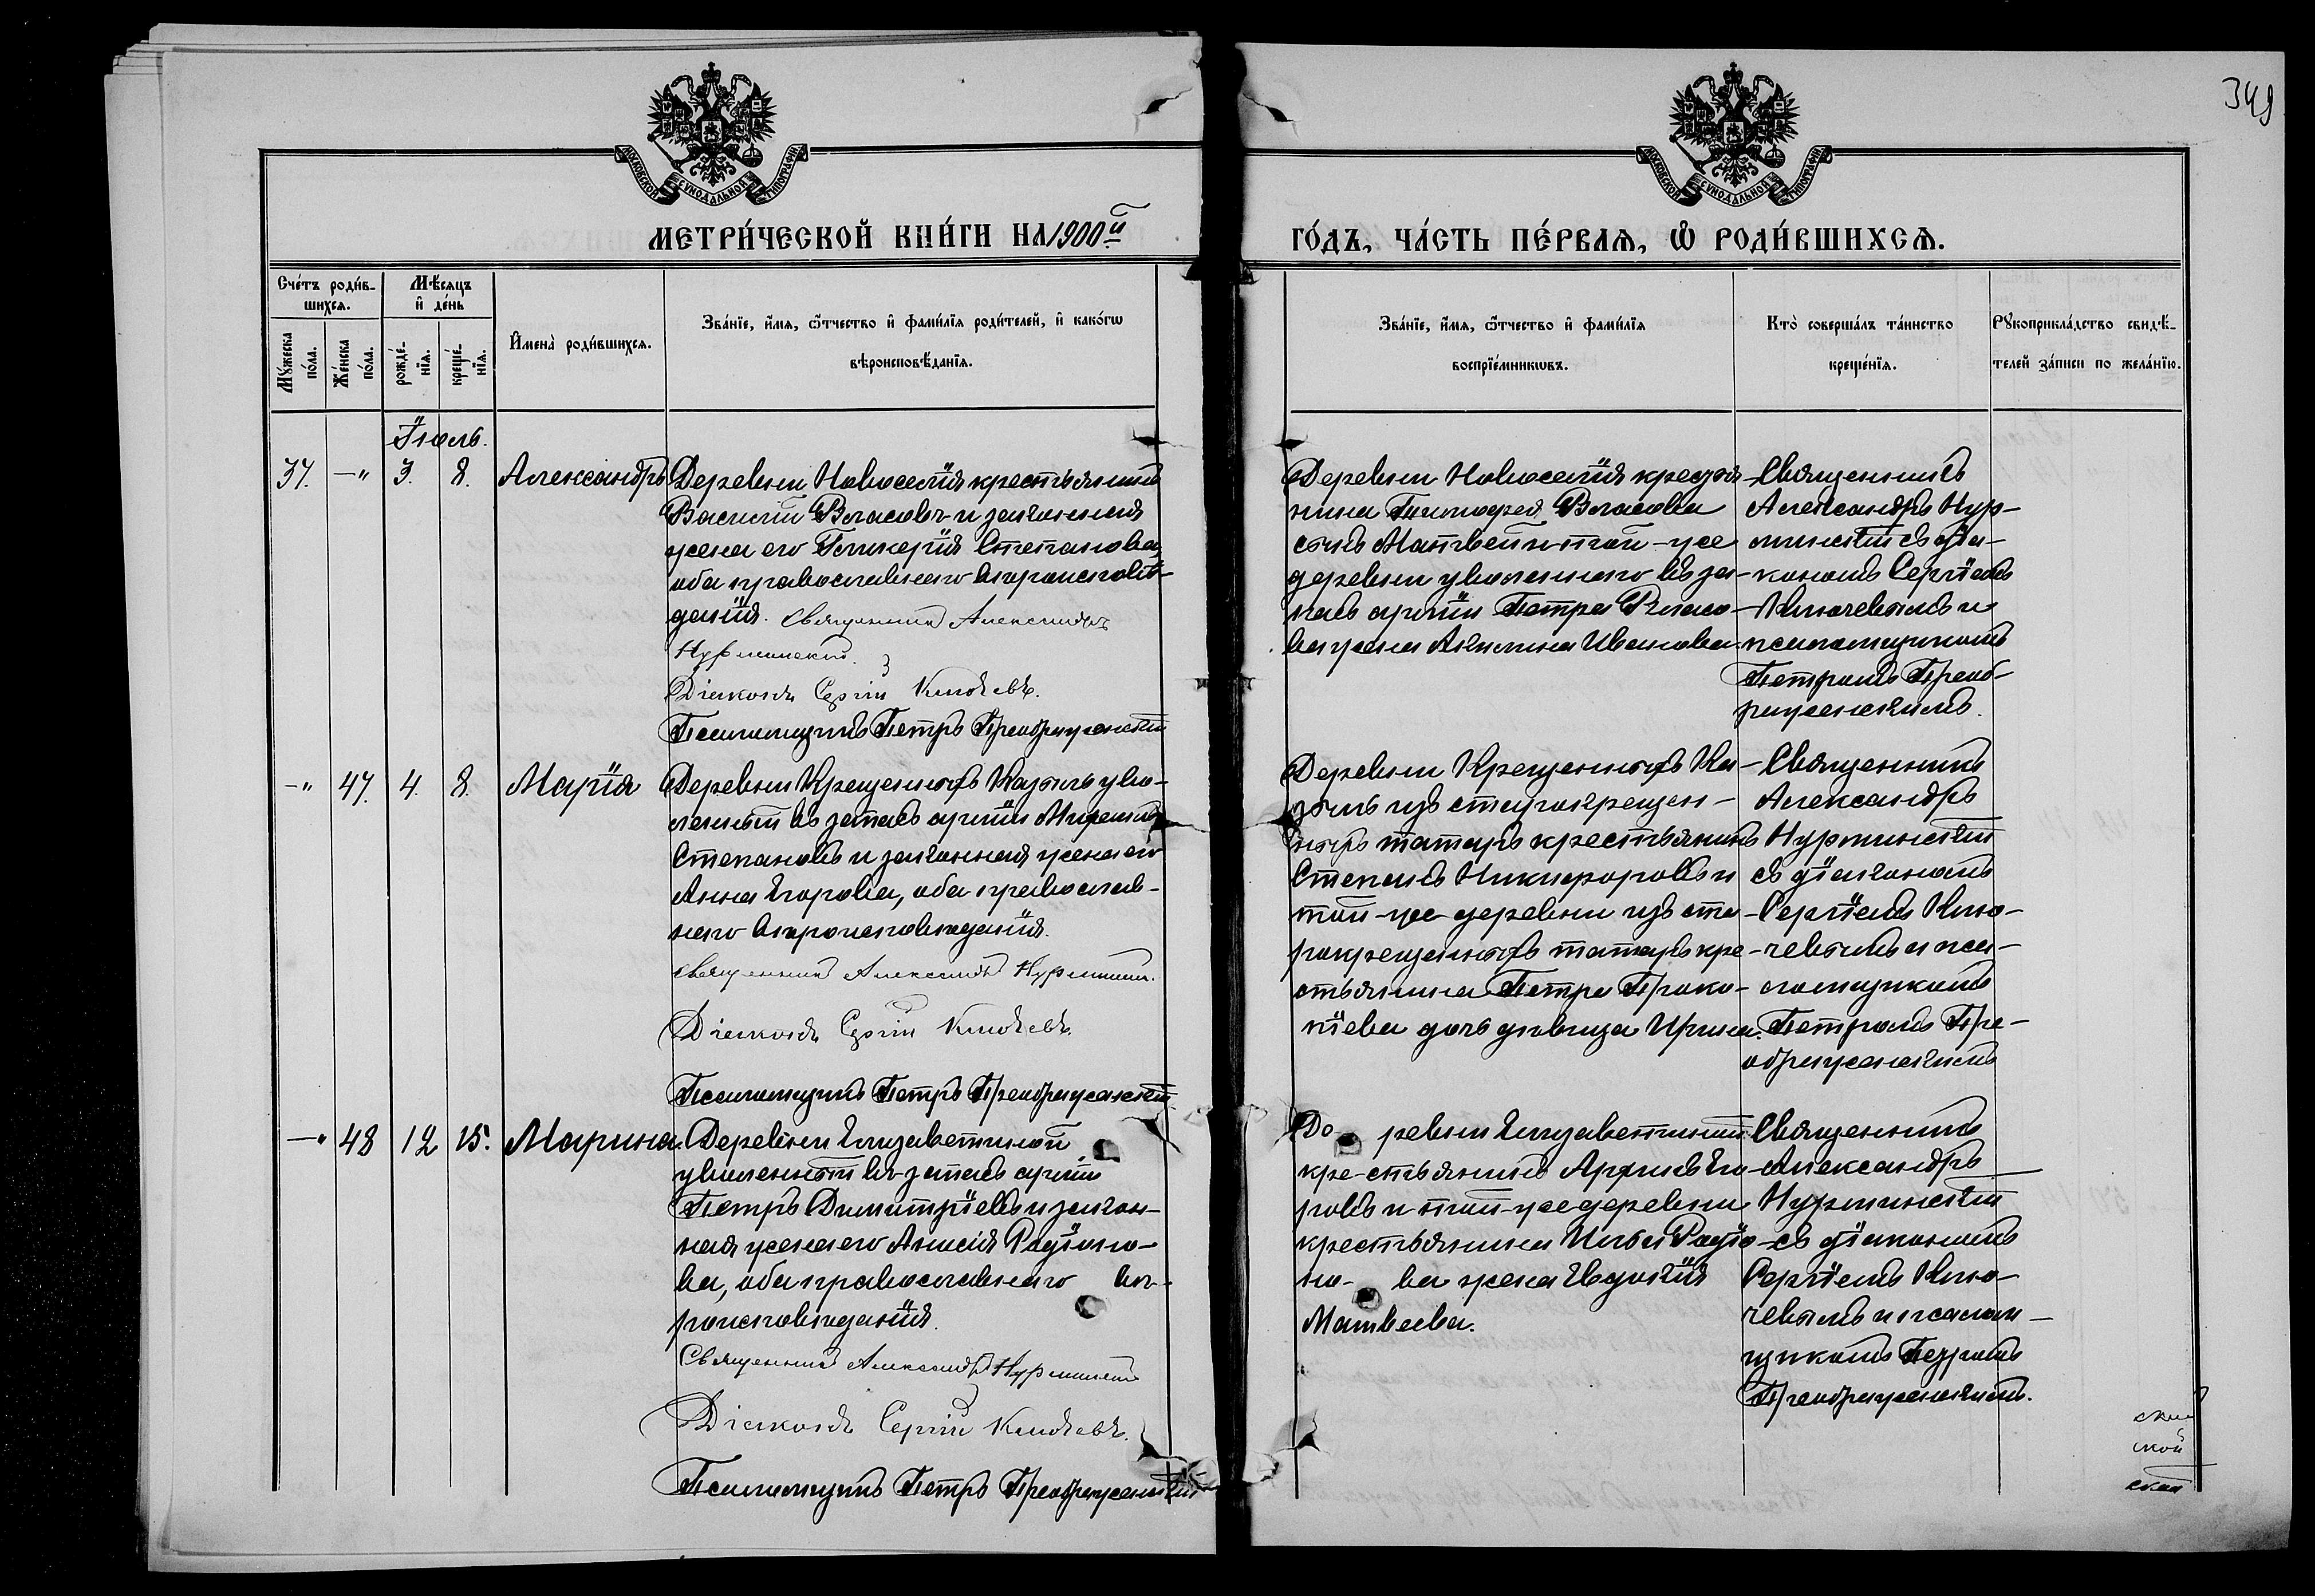 349
МОСКОВСКОЙ СѴНОДАЛЬНОЙ ТИПОГРАФІИ
МОСКОВСКОЙ СѴНОДАЛЬНОЙ ТИПОГРАФІИ
МЕТРИ́ЧЕСКОЙ КНИ́ГИ НА 1900й
ГО́ДЪ, ЧА́СТЬ ПЕ́РВАЯ, Ѡ РОДИ́ВШИХСЯ.
Сче́тъ роди́в-
шихся.
Мѣ́сяцъ
и҆ де́нь
Мꙋ́жеска
по́ла.
Же́нска
по́ла.
рожде́-
нїя.
креще́-
нїя.
И҆мена̀ роди́вшихся.
Зва́нїе, и҆́мя, ѻ҆́тчество и҆ фами́лїя роди́телей, и҆ како́гѡ
вѣроисповѣ́данїя.
Зва́нїе, и҆́мя, ѻ҆́тчество и҆ фами́лїя
воспрїе́мникѡвъ.
Кто̀ соверша́лъ та́инство
креще́нїя.
Рꙋкоприкла́дство свидѣ́-
телей за́писи по жела́нїю.
Іюль.
37. —" 3. 8. Александръ
Деревни Новоселія крестьянинъ
Василій Власовъ и законная
жена его Гликерія Степанова,
оба православнаго вѣроисповѣ-
данія. Священникъ Александръ
Нурминскій.
Діаконъ Сергій Ключевъ.
Псаломщикъ Петръ Преображенскій
Деревни Новоселія крестья-
нина Тимофея Власова
сынъ Матвей и той-же
деревни уволеннаго въ за-
пасъ арміи Петра Власо-
ва жена Акилина Иванова
Священникъ
Александръ Нур-
минскій съ діа-
кономъ Сергіемъ
Ключевымъ и
псаломщикомъ
Петромъ Преоб-
раженскимъ.
—" 47. 4. 8. Марія
Деревни Крещеныхъ Казыль уво-
ленный въ запасъ арміи
Степановъ и законная жена его
Анна Егорова, оба православ-
наго вѣроисповѣданія.
Священникъ Александръ Нурминскій.
Діаконъ Сергій Ключевъ.
Псаломщикъ Петръ Преображенскій.
Деревни Крещеныхъ Ка-
зыль изъ старокрещен-
ныхъ татаръ крестьянинъ
Степанъ Никифоровъ и
той-же деревни изъ ста-
рокрещеныхъ татаръ кре-
стьянина Петра Проко-
піева дочь дѣвица Ирина.
Священникъ
Александръ
Нурминскій
съ діакономъ
Сергіемъ Клю-
чевымъ и пса-
ломщикомъ
Петромъ Пре-
ображенскимъ
—" 48 12 15. Марина.
Деревни Елизаветиной
уволенный въ запасъ арміи
Петръ Димитріевъ и закон-
ная жена его Анисія Родіоно-
ва, оба православнаго вѣ-
роисповѣданія.
Священникъ Александръ Нурминскій
Діаконъ Сергій Ключевъ.
Псаломщикъ Петръ Преображенскій
Де ревни Елизаветиной
кре-стьянинъ Его-
ровъ и той-же деревни
крестьянина Ильи Родіо-
но- ва жена Евдокія
Матвеева.
Священникъ
Александръ
Нурминскій
съ діакономъ
Сергіемъ Клю-
чевымъ и псалом-
щикомъ Петромъ
Преображенскимъ.
скій
ской